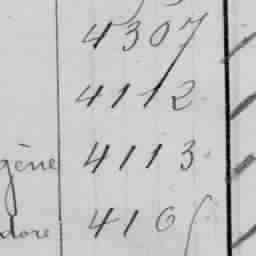 4307
4112
gène 4113
dore 416